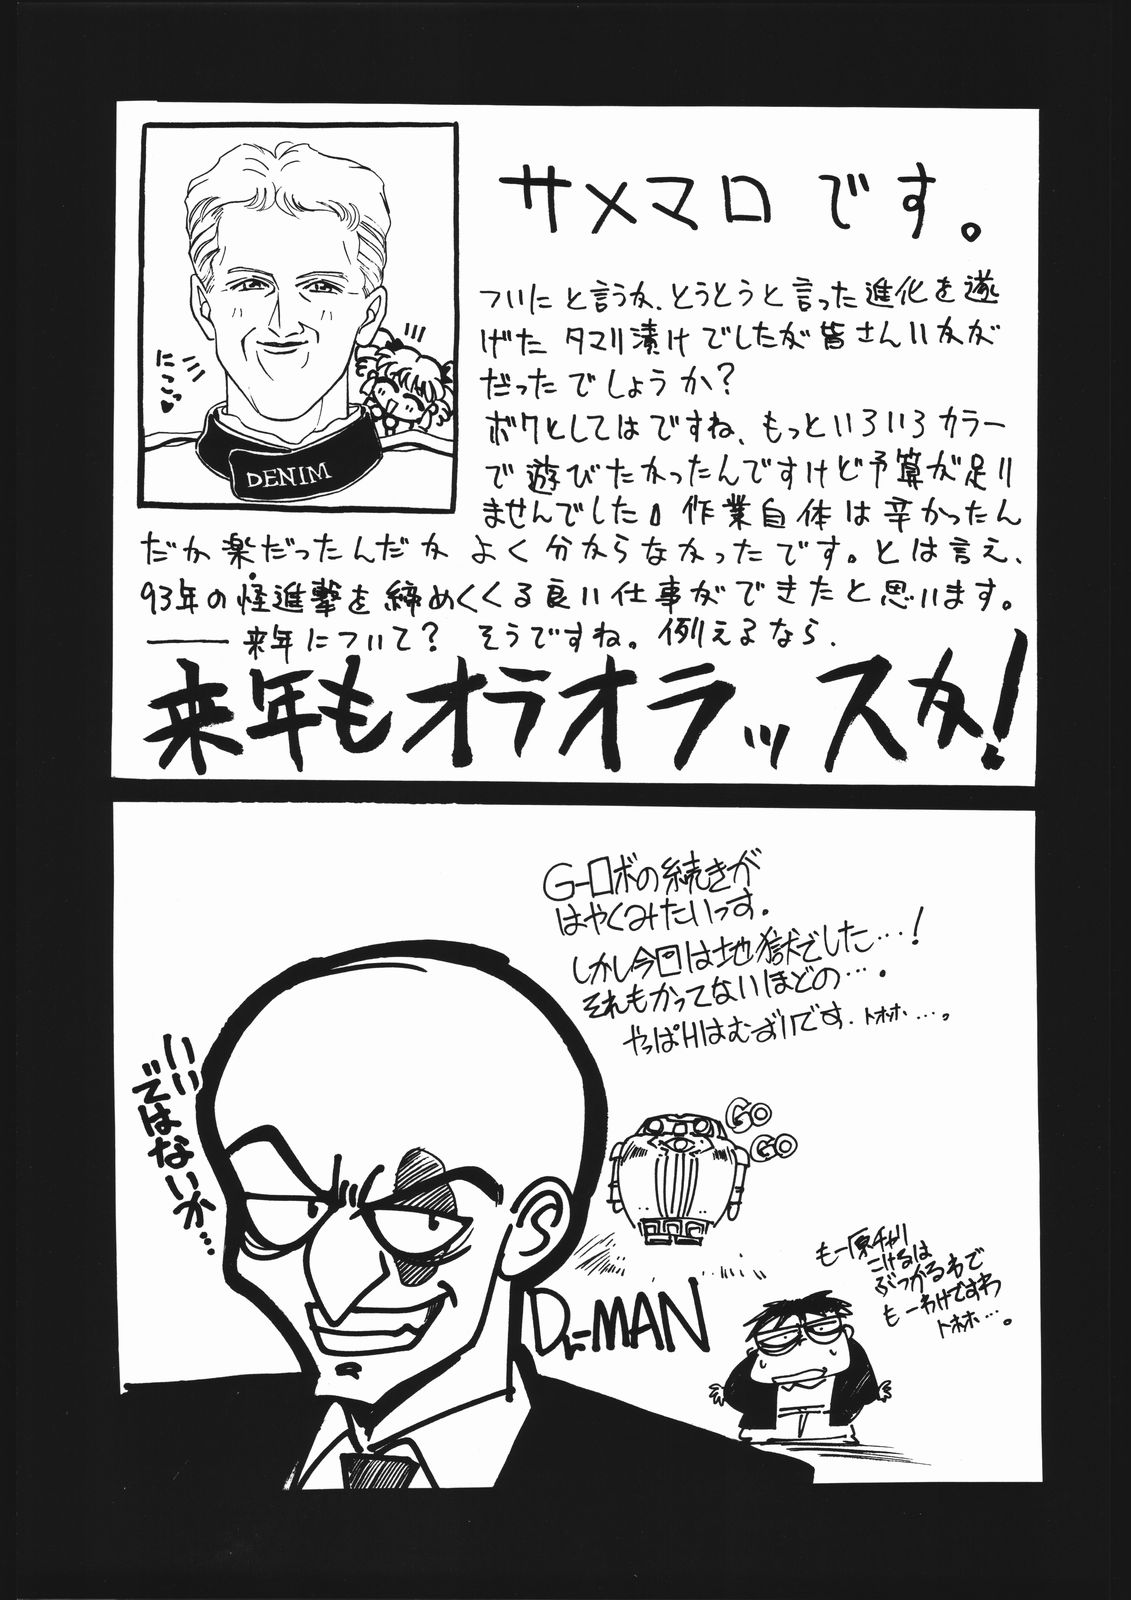 サメマロ です。
ついにと言うか、とうとうと言った進化を遂
げたタマリ漬けでしたが皆さんいかが
だったでしょうか?
ボクとしてはですね、もっといろいろカラー
で遊びたかったんですけど予算が足り
ませんでした。作業自体は辛かったん
だか楽だったんだか よく分からなかったです。とは言え、
93年の怪進撃を締めくくる良い仕事ができたと思います。
――来年について? そうですね。例えるなら、
来年もオラオラッスか!
にこっ♥
DENIM
G-ロボの続きが
はやくみたいっす。
しかし今回は地獄でした…!
それもかってないほどの…。
やっぱHはむずいです。トホホ…。
いい
ではないか…
GO
GO
Dr-MAN
もー原チャリ
こけるは
ぶつかるわで
もーわけですわ
トホホ…。